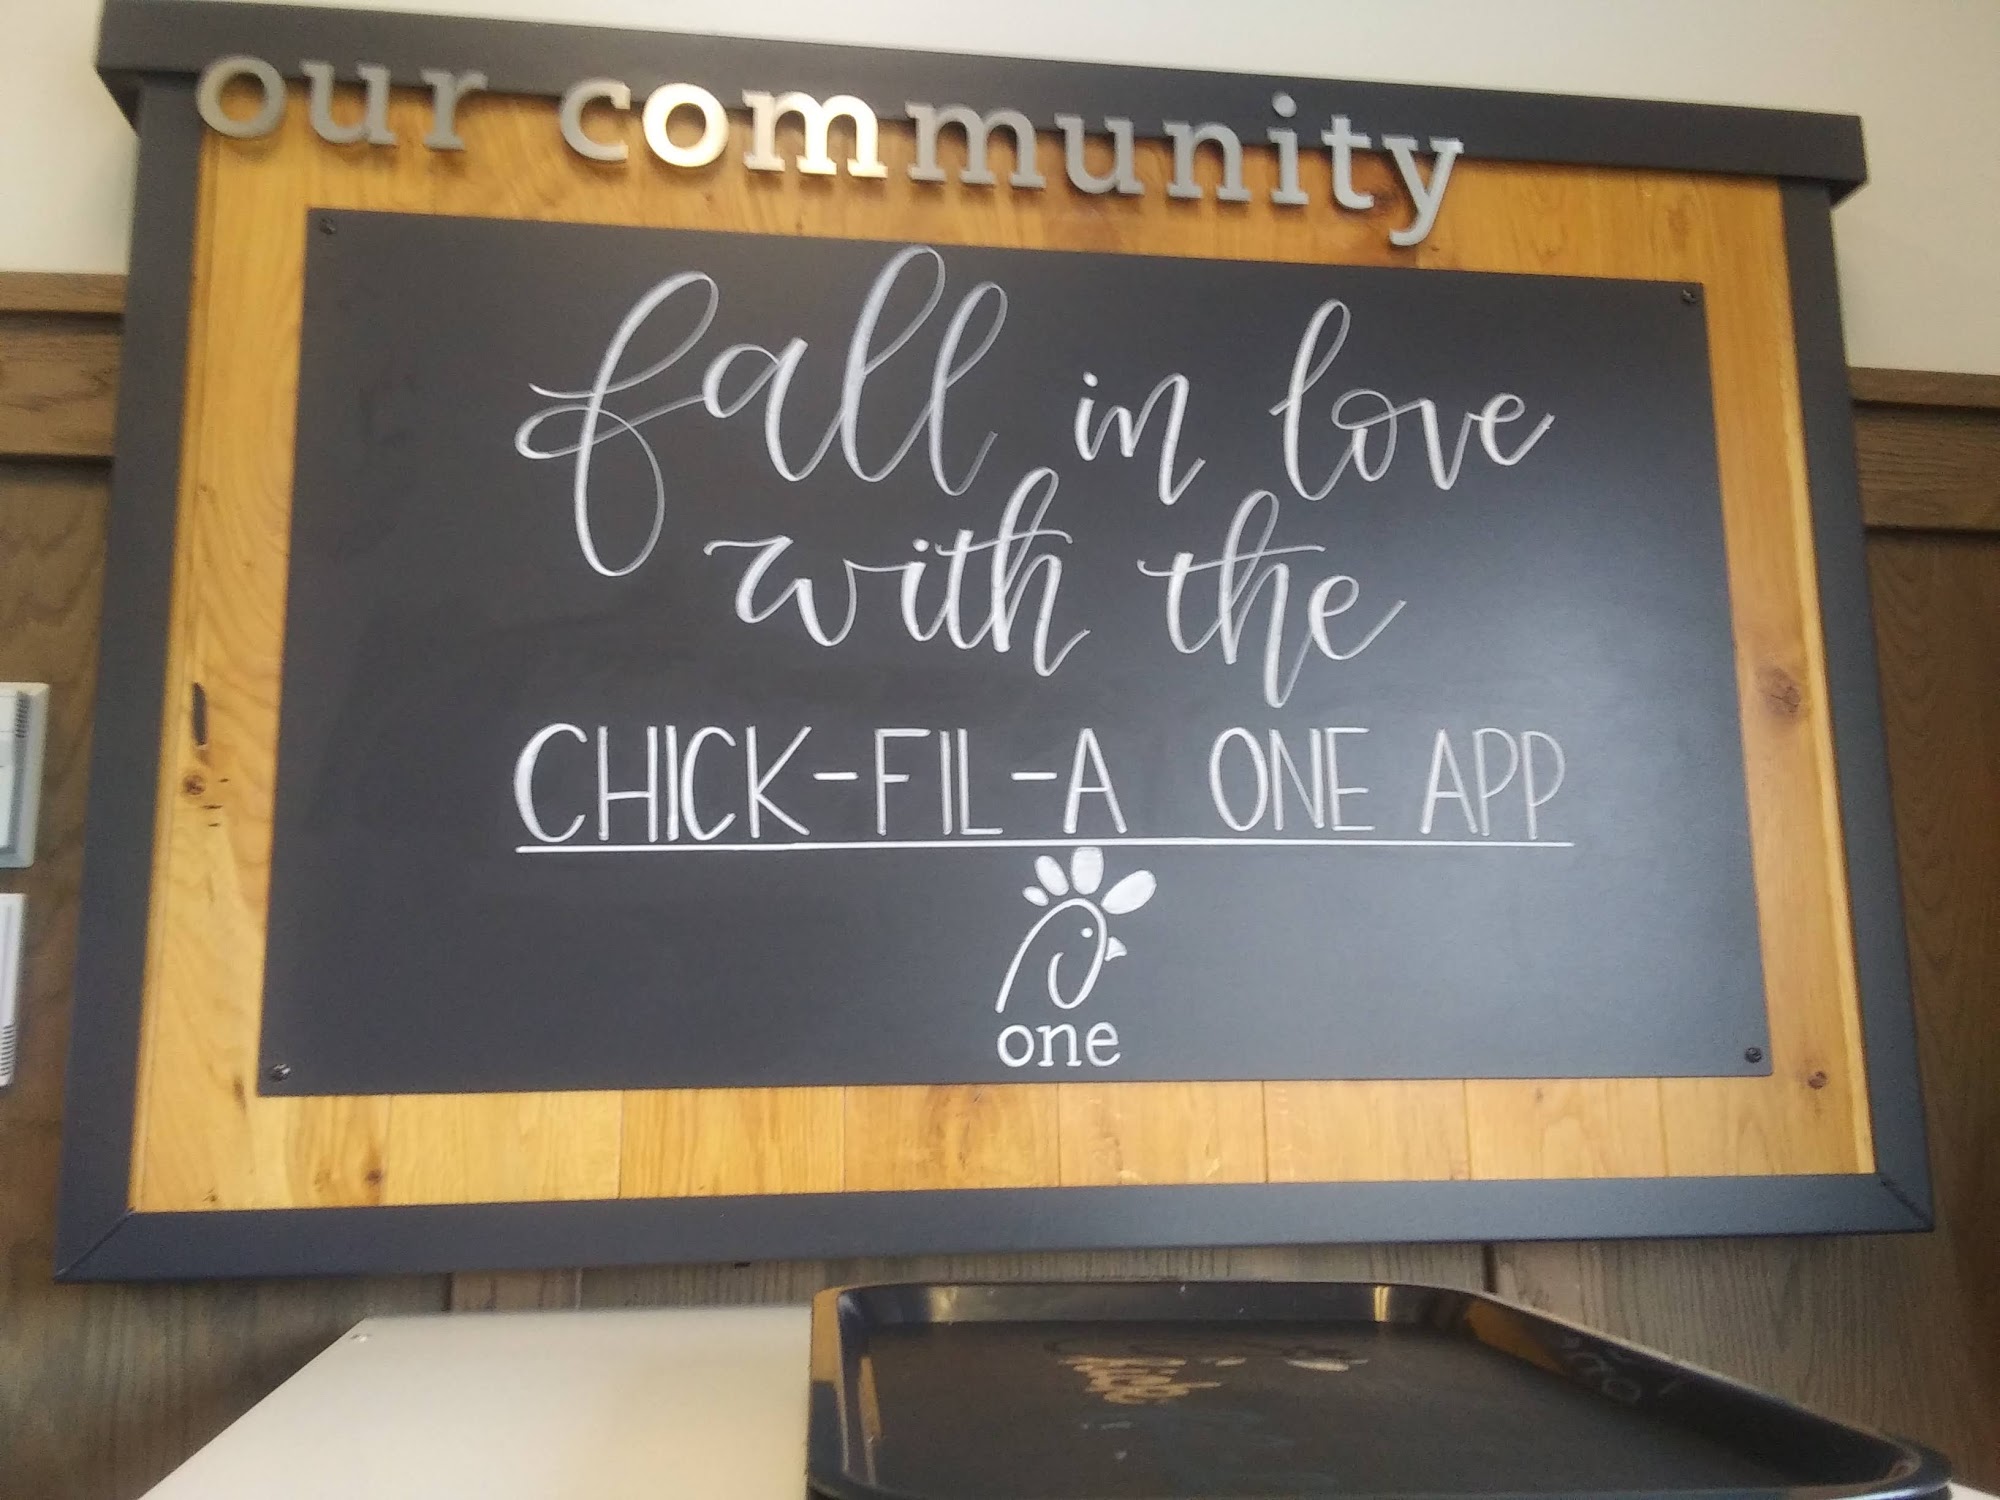 our community
fall in love
with the
CHICK-FIL-A ONE APP
one